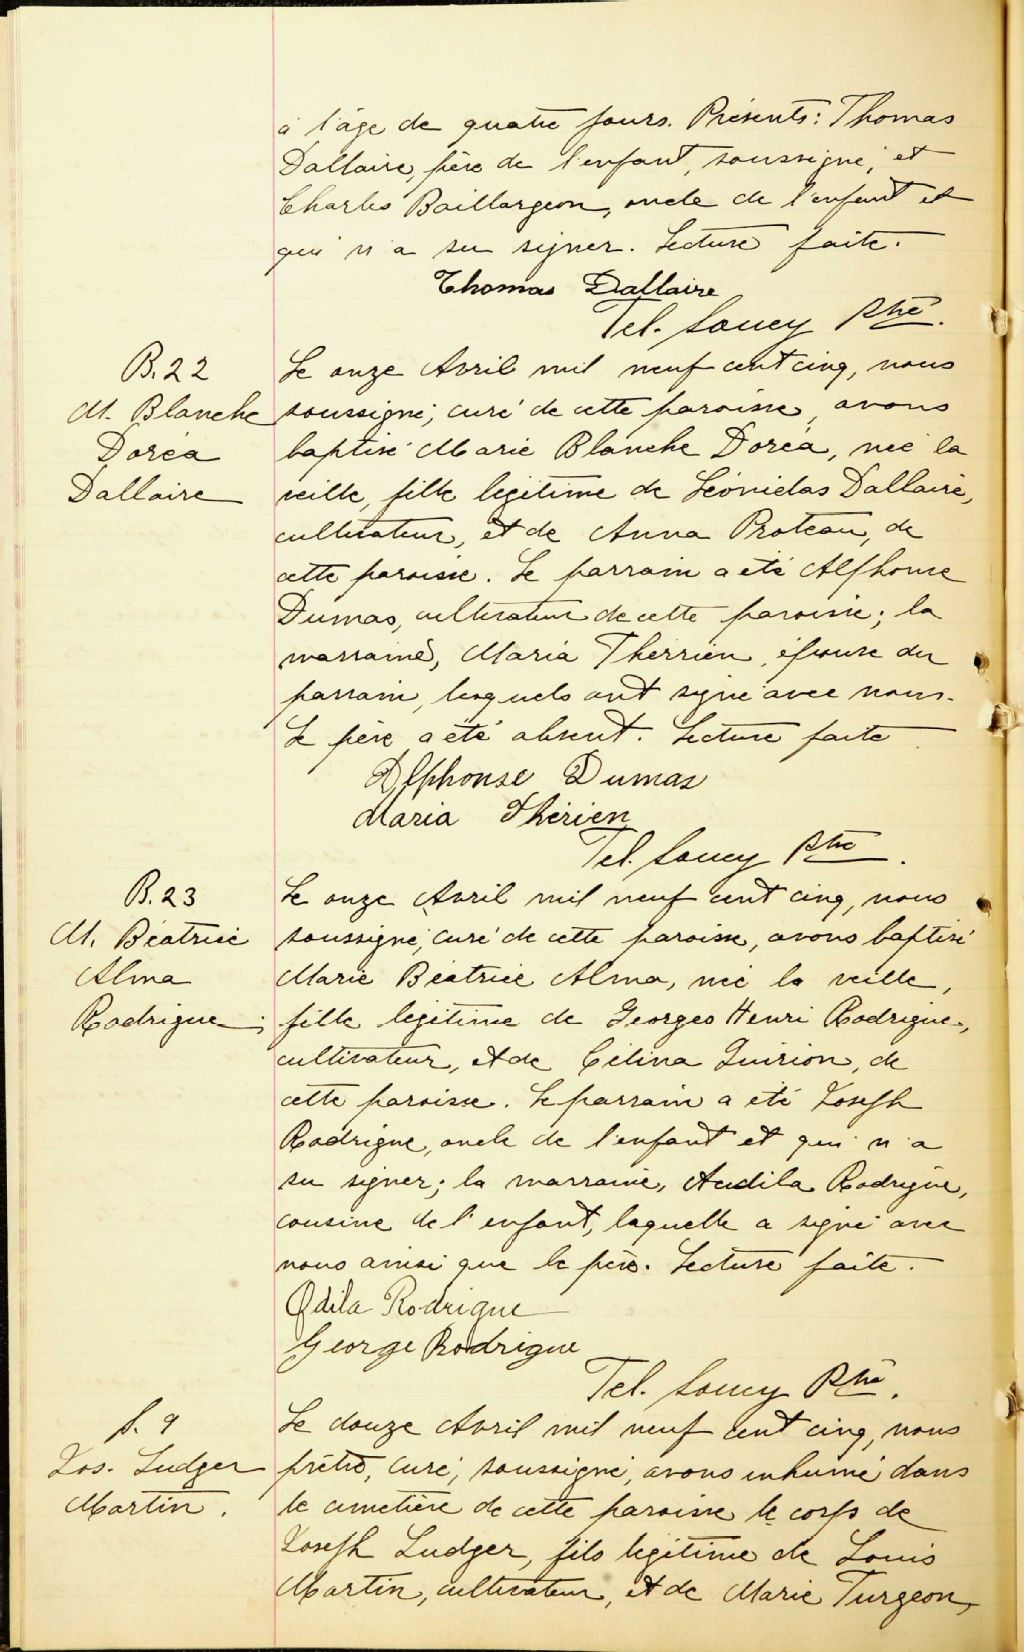 à l'âge de quatre jours. Présents: Thomas
Dallaire, père de l'enfant, soussigné, et
Charles Baillargeon, oncle de l'enfant et
qui n'a su signer. Lecture faite.
Thomas Dallaire
Tel. Soucy Ptre.
B. 22
M. Blanche
Doréa
Dallaire
Le onze Avril mil neuf cent cinq, nous
soussigné, curé de cette paroisse, avons
baptisé Marie Blanche Doréa, née la
veille, fille légitime de Léonidas Dallaire,
cultivateur, et de Anna Proteau, de
cette paroisse. Le parrain a été Alphonse
Dumas, cultivateur de cette paroisse; la
marraine, Maria Therrien, épouse du
parrain, lesquels ont signé avec nous.
Le père a été absent. Lecture faite
Alphonse Dumas
Maria Thérien
Tel. Soucy Ptre.
B. 23
M. Béatrice
Alma
Rodrigue
Le onze Avril mil neuf cent cinq, nous
soussigné, curé de cette paroisse, avons baptisé
Marie Béatrice Alma, née la veille,
fille légitime de Georges Henri Rodrigue,
cultivateur, et de Célina Quirion, de
cette paroisse. Le parrain a été Joseph
Rodrigue, oncle de l'enfant et qui n'a
su signer; la marraine, Audila Rodrigue,
cousine de l'enfant, laquelle a signé avec
nous ainsi que le père. Lecture faite.
Odila Rodrigue
George Rodrigue
Tel. Soucy Ptre.
S. 9
Jos. Ludger
Martin.
Le douze Avril mil neuf cent cinq, nous
prêtre, curé, soussigné, avons inhumé dans
le cimetière de cette paroisse le corps de
Joseph Ludger, fils légitime de Louis
Martin, cultivateur, et de Marie Turgeon,